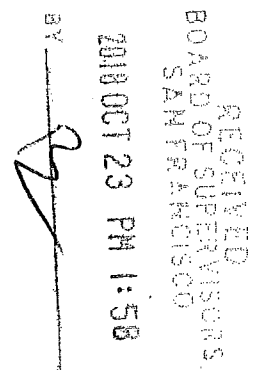 RECEIVED
BOARD OF SUPERVISORS
SAN FRANCISCO
2018 OCT 23 PM 1:58
BY